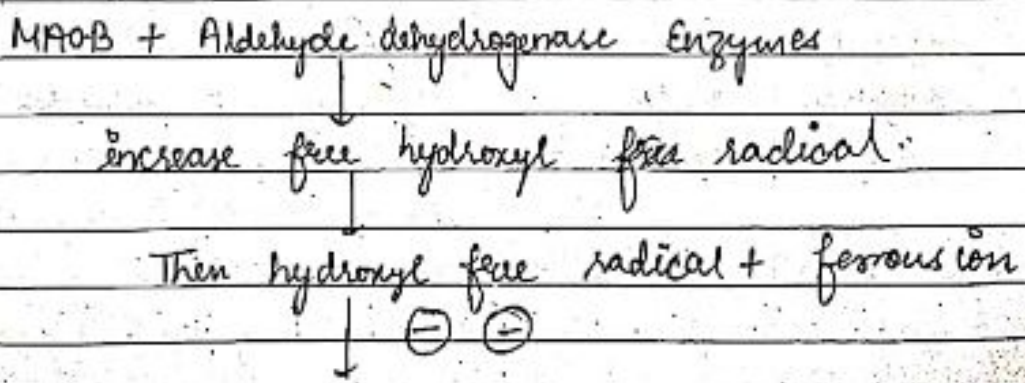 MAOB + Aldehyde dehydrogenase Enzymes
↓
increase free hydroxyl free radical.
↓
Then hydroxyl free radical + ferrous ion
↓ ⊖ ⊕